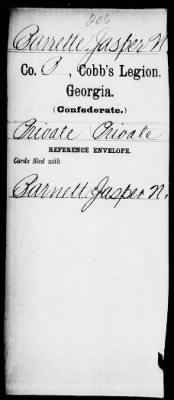 206
Barrette, Jasper N
Co. B, Cobb's Legion,
Georgia.
(Confederate.)
Private Private
REFERENCE ENVELOPE.
Cards filed with
Barnett, Jasper N.